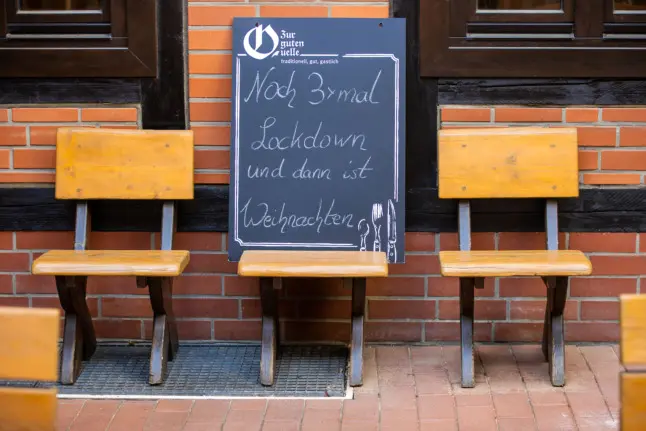 Zur
guten
Quelle
traditionell, gut, gastlich
Noch 3x mal
Lockdown
und dann ist
Weihnachten